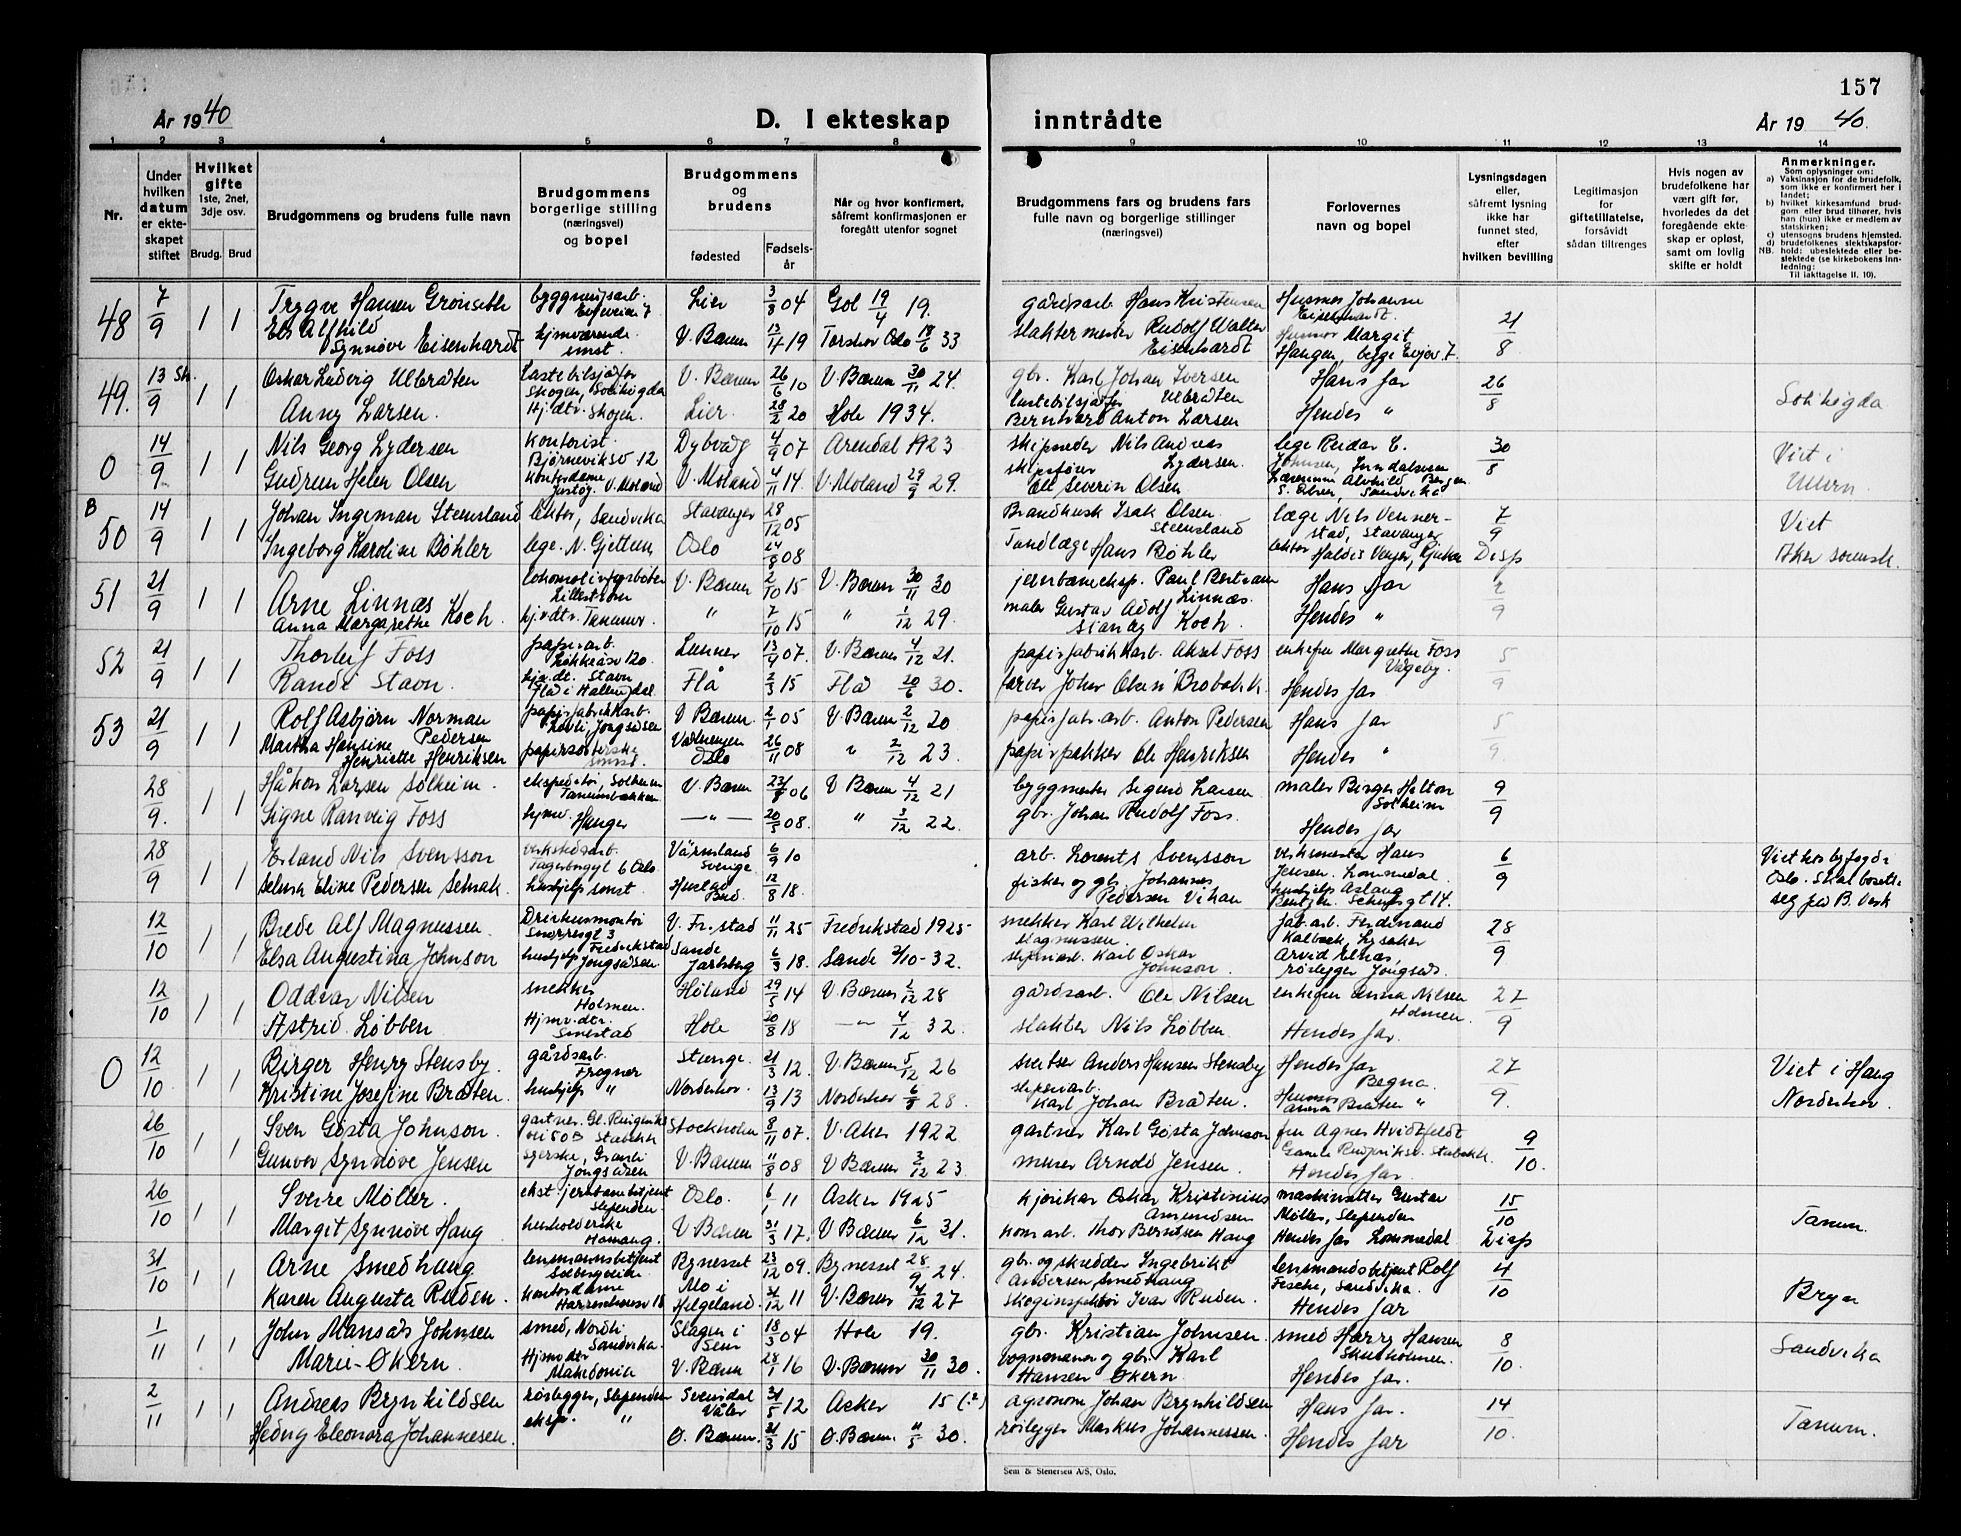 157
År 1940
D. I ekteskap inntrådte
År 1940.
1 2 3 4 5 6 7 8 9 10 11 12 13 14
Nr.
Under hvilken datum er ekteskapet stiftet
Hvilket gifte 1ste, 2net, 3dje osv.
Brudg. Brud
Brudgommens og brudens fulle navn
Brudgommens borgerlige stilling (næringsvei) og bopel
Brudgommens og brudens
fødested
Fødsels-år
Når og hvor konfirmert, såfremt konfirmasjonen er foregått utenfor sognet
Brudgommens fars og brudens fars fulle navn og borgerlige stillinger (næringsvei)
Forlovernes navn og bopel
Lysningsdagen eller, såfremt lysning ikke har funnet sted, efter hvilken bevilling
Legitimasjon for giftetillatelse, forsåvidt sådan tiltrenges
Hvis nogen av brudefolkene har vært gift før, hvorledes da det foregående ekteskap er opløst, samt om lovlig skifte er holdt
Anmerkninger.
Som oplysninger om:
a) Vaksinasjon for de brudefolk, som ikke er konfirmert her i landet;
b) hvilket kirkesamfund brudgom eller brud tilhører, hvis han (hun) ikke er medlem av statskirken;
c) utensogns brudens hjemsted.
d) brudefolkenes slektskapsforhold: ubeslektede eller beslektede (se kirkebokens innledning:
NB. Til iakttagelse II. 10).
48 7/9 1 1 Trygve Hansen byggningsarb. Lier 3/8 04 Gol 19/4 19. gårdsarb. Hans Kristensen Husmor Johanne 21/8
Els Alfhild Synnøve Eisenhardt hjmværende smst. V. Bærum 13/4 19 Torshov Oslo 18/6 33 slaktermester Rudolf Walter Eisenhardt Husmor Margit Haugen, begge
49. 13/9 1 1 Oskar Ludvig Ulbråten lastebilsjåfør Skogen, Sollihøgda V. Bærum 26/6 10 V. Bærum 30/11 24. gbr. Karl Johan Iversen Ulbråten Hans far 26/8 Sollihøgda
Anny Larsen. Hj. dtr. Skogen. Lier. 28/2 20 Hole 1934. lastebilsjåfør Bernhard Anton Larsen Hendes "
0 14/9 1 1 Nils Georg Lydersen kontorist. Bjørneviksv 12 Dybvåg 4/9 07 Arendal 1923 skipsreder Nils Andreas Lydersen. lege Reidar C. Johnsen, 30/8 Viet i Ullern.
Gudrun Helen Olsen kontordame V. Moland V. Moland 4/11 14. V. Moland 29/9 29. skipsfører Ole Severin Olsen Bergen S. Olsen, Sandvika
B 50 14/9 1 1 Johan Ingeman Steensland lektor, Sandvika Stavanger 28/12 05 Isak Olsen Steensland læge Nils Vennerstad, Stavanger 7/9 Viet
Ingeborg Karoline Bøhler lege. N. Gjettum, Oslo 24/8 08 Tandlæge Hans Bøhler lektor Disp Aker sorensk.
51 21/9 1 1 Arne Linnæs Lillestrøm V. Bærum 2/10 15 V. Bærum 30/11 30 Paul Bertram Linnæs. Hans far 2/9
Anna Margarethe Koch. hj.v.dtr. Tanum. " 7/10 15 " 1/12 29. maler Gustav Adolf Koch. Hendes "
52 21/9 1 1 Thorleif Foss papirarb. Lunner 13/4 07. V. Bærum 4/12 21. papirfabrikkarb. Aksel Foss enkefru Margrethe Foss 5/9
Randi Stavn. Stavn Flå i Hallingdal Flå 2/3 15 Flå 20/6 30. Hendes far
53 21/9 1 1 Rolf Asbjørn Norman Pedersen papirfabrikkarb. V Bærum. 2/1 05 V. Bærum 2/12 20 papirfabr.arb. Anton Pedersen Hans far 5/9
Martha Hansine Henriette Henriksen papirsorterske smst. Oslo 26/11 08 " 2/12 23. papirpakker Ole Henriksen Hendes "
28/9. 1 1 Håkon Larsen Solheim. Solheim V. Bærum 23/8 06 V Bærum 4/12 21 byggmester Sigurd Larsen maler Birger Solheim 9/9
Signe Ranveig Foss hjmv. Hauger — " — 20/5 08. " 3/12 22. gbr. Johan Rudolf Foss. Hendes far
28/9 1 1 Erland Nils Svensson verkstedsarb. Oslo Värmland Sverige 6/9 10 arb. Lorents Svensson verksmester Hans Jensen. Lommedal 6/9 Viet hos byfogd i Oslo. Skal bosette seg på B. Verk
Selma Eline Pedersen Selnak. hushjelp smst. 12/8 18. fisker og gbr. Johannes Pedersen hushjelp Aslaug
12/10 1 1 Brede Alf Magnussen. V. Fr.stad 11/11 25 Fredrikstad 1925 snekker Karl Wilhelm Magnussen. fab.arb. Ferdinand Kalbæk, Lysaker 28/9
Elsa Augustina Johnson hushjelp Sande Jarlsberg 6/3 18. Sande 2/10-32. Karl Oskar Johnson. Arvid Elnæs, rørlegger
12/10 1 1 Oddvar Nilsen snekker Holmen. Høland 29/5 14 V. Bærum 2/12 28 gårdsarb. Ole Nilsen enkefru Anna Nilsen Holmen. 27/9
Astrid Løbben Hjmv.dtr. Smestad Hole 20/8 18 — " — 4/12 32. slakter Nils Løbben Hendes far.
0 12/10 1 1 Birger Henry Stensby gårdsarb. Frogner Stange. 21/3 12. V. Bærum 5/12 26 Anders Hansen Stensby Hendes far Begna. 27/9. Viet i Haug Norderhov.
Kristine Josefine Bråten. hushjelp " Norderhov. 13/9 13 Norderhov 6/8 28. Karl Johan Bråten. Husmor Anna Bråten "
26/10 1 1 Sven Gösta Johnson. gartner. Stabekk Stockholm 8/11 07. V. Aker 1922 gartner Karl Gösta Johnson fru Agnes Hvidtfeldt 9/10.
Gunvor Synnøve Jensen V. Bærum 11/8 08 V Bærum 2/12 23. murer Arnold Jensen. Hendes far.
26/10 1 1 Sverre Møller. Slependen. Oslo. 6/1 11 Asker 1925 Oskar Kristinius Amundsen Gustav Møller, Slependen 15/10 Tanum.
Margit Synnøve Haug husholderske Hamang. V Bærum 31/3 17. V Bærum 6/12 31. kom arb. Thor Berntsen Haug Hendes far Lommedal. Disp
31/10 1 1 Arne Smedhaug lensmannsbetjent Bynesset 23/12 09. Bynesset 28/9 24. gbr. og skredder Ingebrikt Andersen Smedhaug lensmandsbetjent Rolf Fesche, Sandvika. 4/10 Bryn
Karen Augusta Ruden. kontordame Mo i Helgeland. 31/12 11 V. Bærum 4/12 27 skoginspektør Ivar Ruden. Hendes far
1/11 1 1 John Mansås Johnsen smed, Nordli Sandvika. Slagen i Sem 18/3 04 Hole 19. gbr. Kristian Johnsen. smed Harry Hansen 8/10. Sandvika
Marie Økern. Hjmv dtr Makedonia V. Bærum 28/1 16 V. Bærum 30/11 30. vognmann og gbr. Karl Hansen Økern Hendes far.
2/11 1 1 Andreas Brynhildsen rørlegger, Slependen Svinndal Våler 31/5 12 Asker 15 (?) agronom Johan Brynhildsen Hans far. 14/10. Tanum.
Hedvig Eleonora Johannesen. eksp. " Ø. Bærum. 21/3 15 Ø. Bærum. 11/5 30. rørlegger Markus Johannessen. Hendes far
Sem & Stenersen A/S, Oslo.